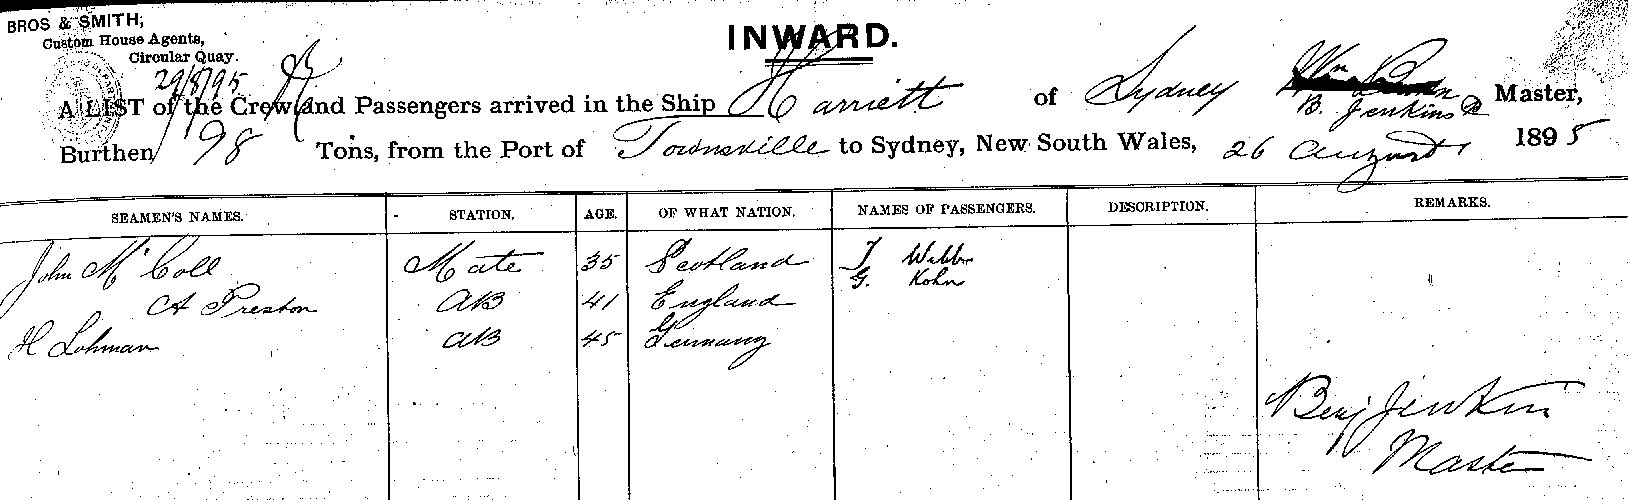 BROS & SMITH,
Custom House Agents,
Circular Quay.
29/8/95
INWARD.
A LIST of the Crew and Passengers arrived in the Ship Harriett of Sydney B. Jenkins Master,
Burthen 98 Tons, from the Port of Townsville to Sydney, New South Wales, 26 August 1895
SEAMEN'S NAMES. STATION. AGE. OF WHAT NATION. NAMES OF PASSENGERS. DESCRIPTION. REMARKS.
John McColl Mate 35 Scotland T Webb
G. Kohn
A Preston AB 41 England
H Lohman AB 45 Germany
Benj Jenkins
Master